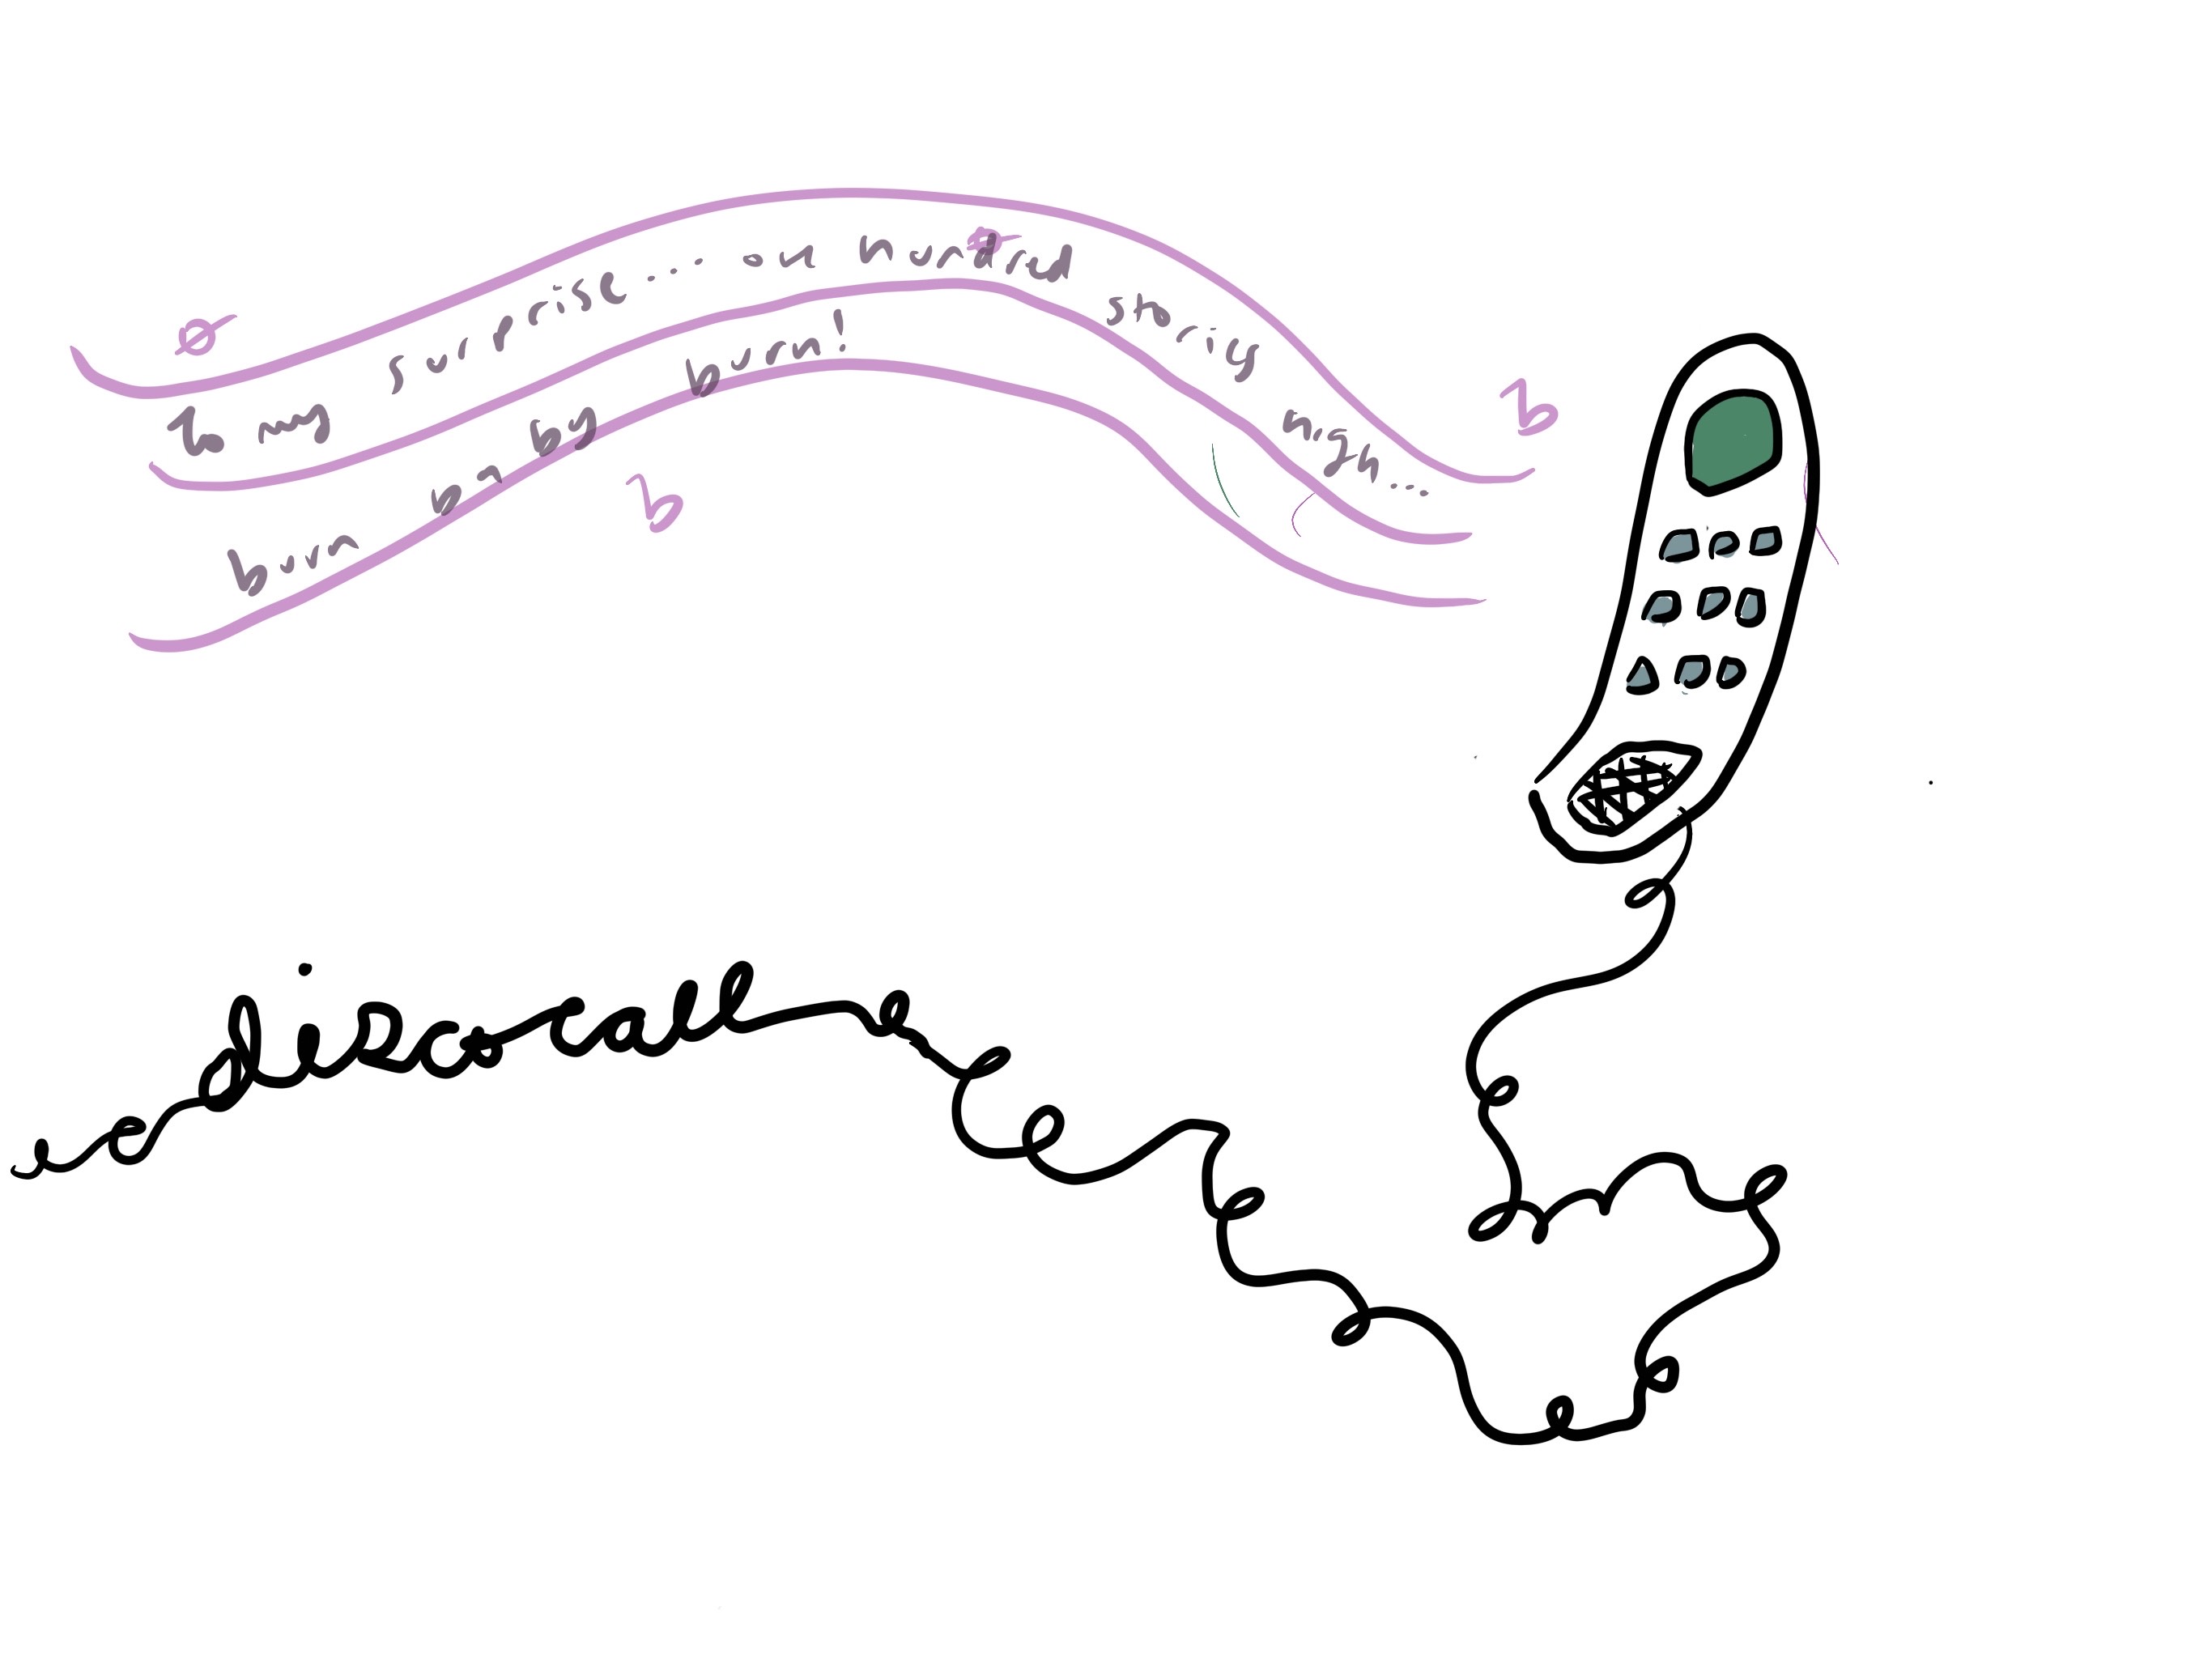 To my surprise.... one hundred storis high...
burn baby burn!
disco call